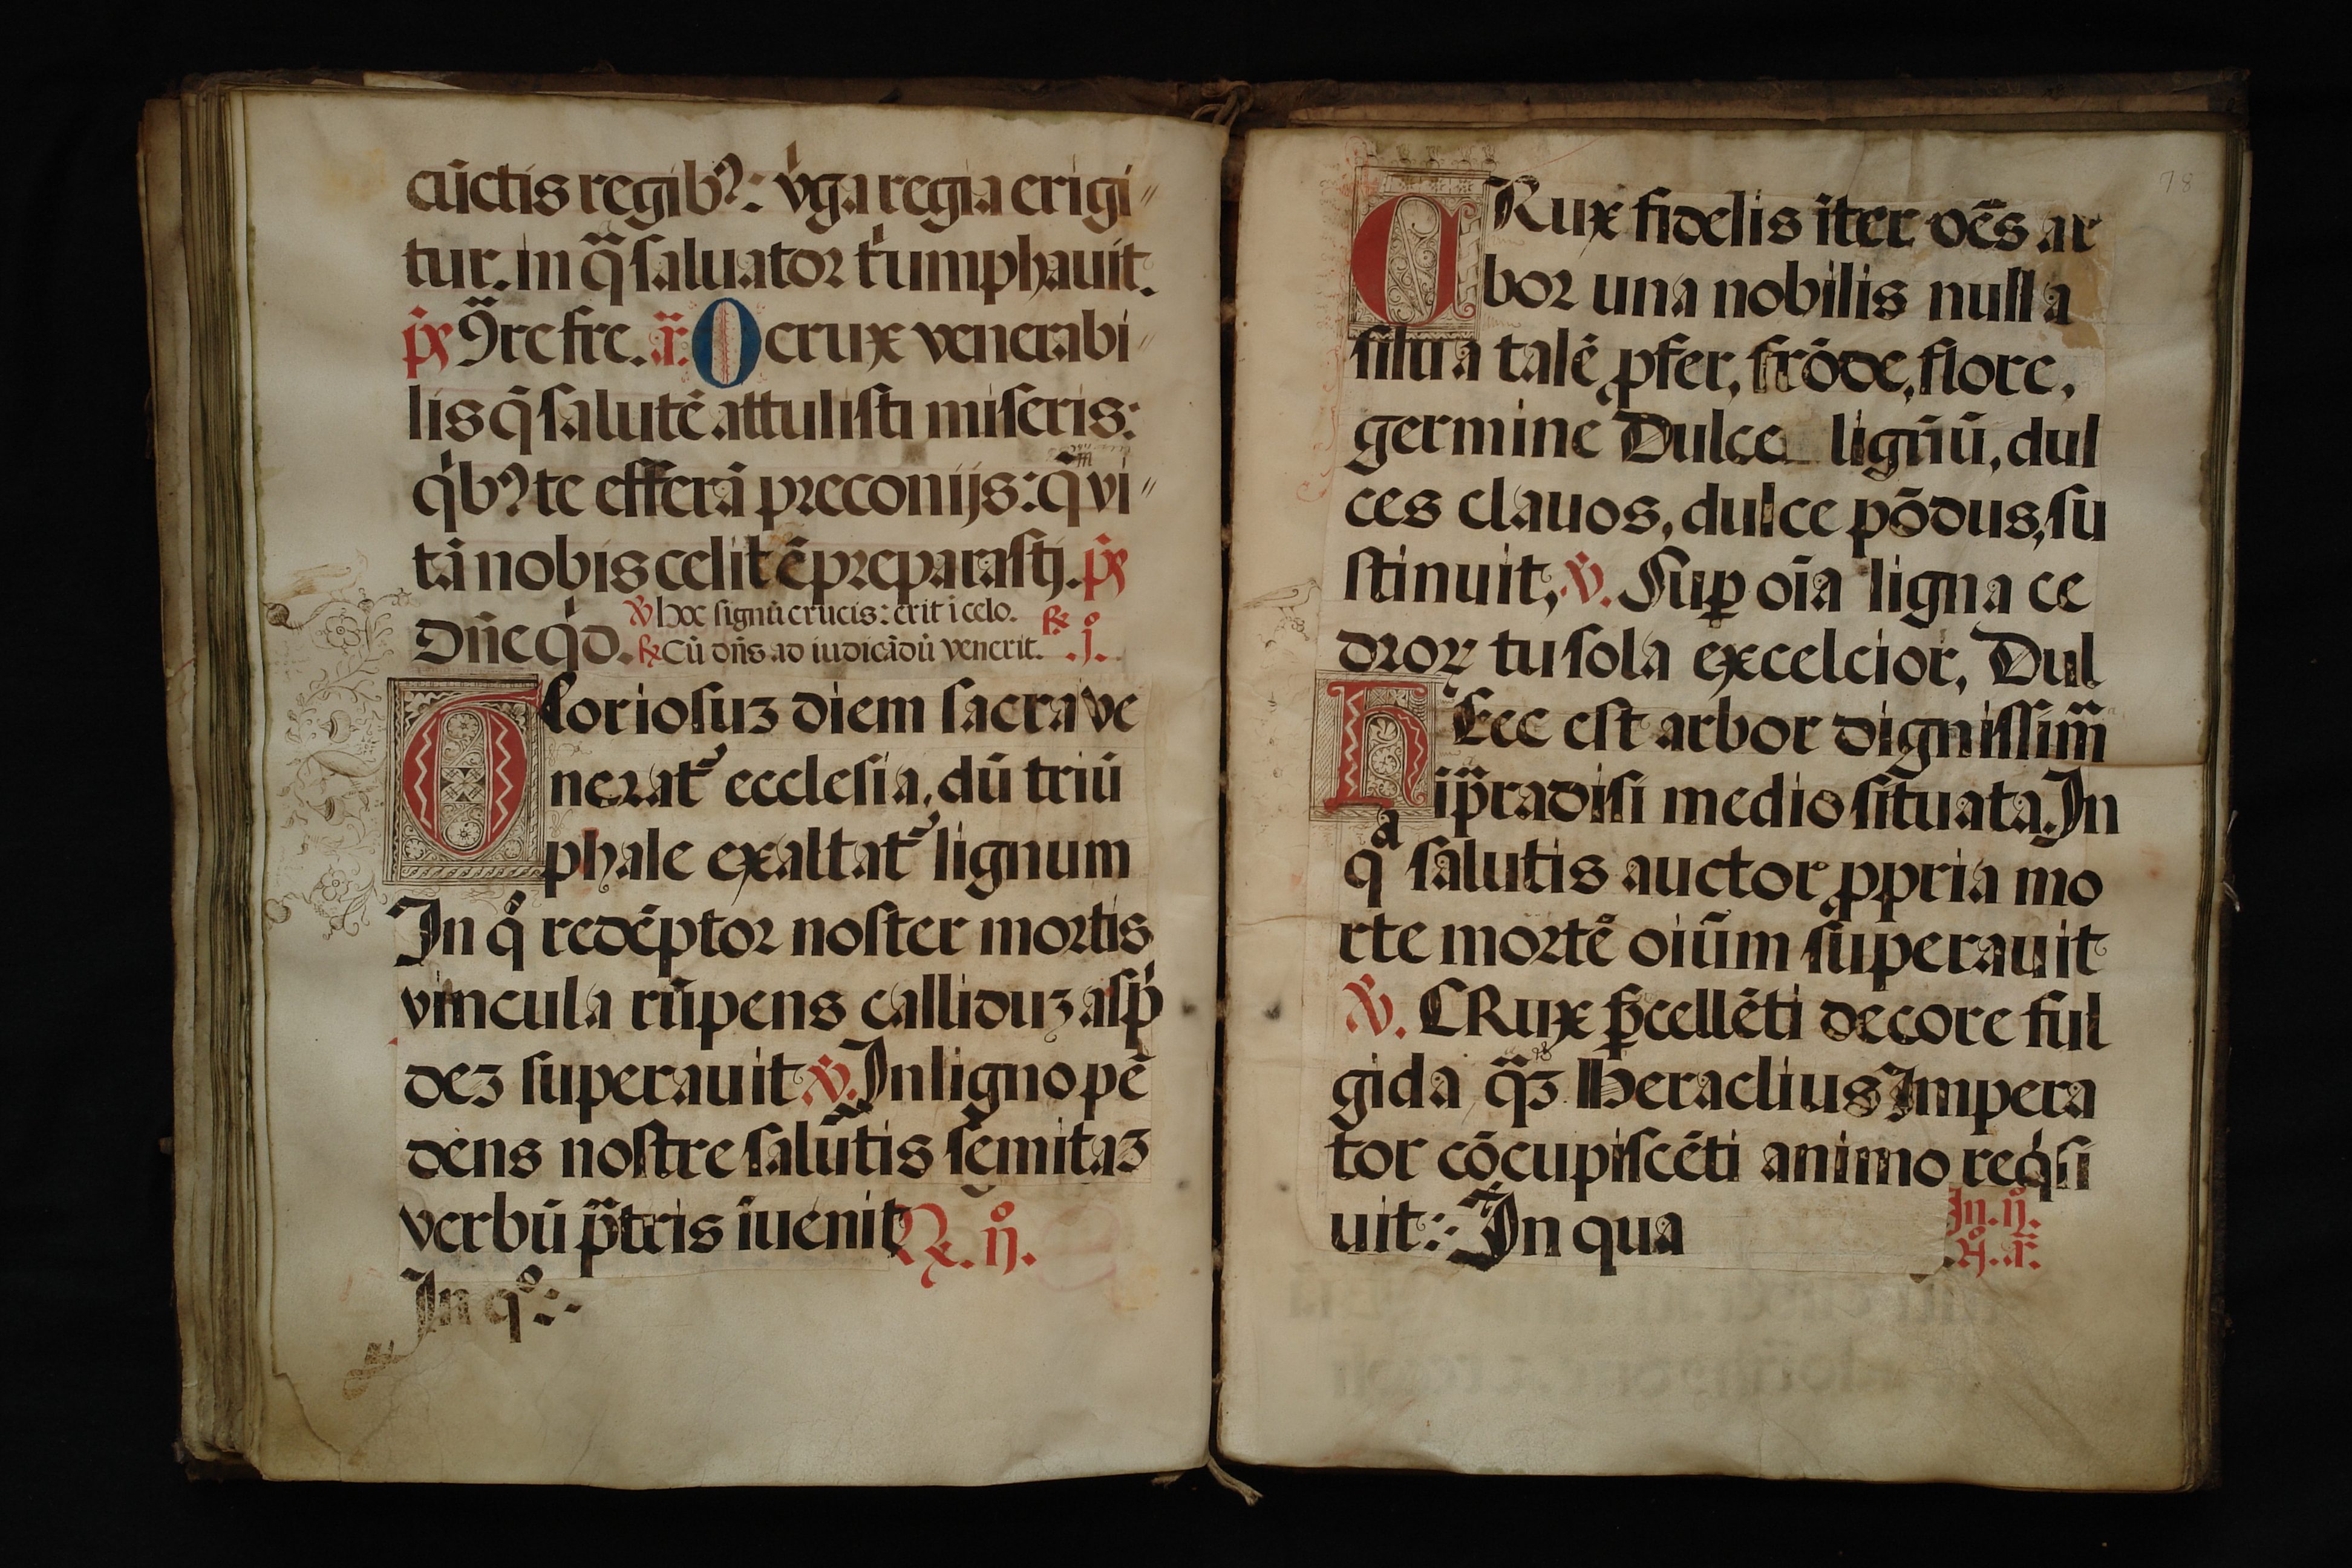 cūctis regibꝰ: v̓ga regia erigi〃
tur. in q̃ saluator t̓umphauit.
p̃s 9re fre. a᷒. O crux venerabi〃
lis q̄ salutē attulisti miseris:
q̓bꝰ te efferā preconijs: q̄ vi〃
tā nobis celitē preparasti. p̃s
Dn̄e q̓d.
℣ Hoc signū crucis: erit i celo. ℞
℞ Cū dn̄s ad iudicādū venerit. .j.
Gloriosuȝ diem sacra ve
nerat᷒ ecclesia, dū triū
phale exaltat᷒ lignum
In q̊ redēptor noster mortis
vincula rūpens calliduȝ asp̄
deȝ superauit ℣. In ligno pē
dens nostre salutis semitaȝ
verbū p̄tris iuenit ℞. ij.
In qº:-
78
CRux fidelis iter oēs ar
bor una nobilis nulla
silua talē ꝓfer, frōde, flore,
germine Dulce lignū, dul
ces clauos, dulce pōdus, su
stinuit, ℣. Suꝑ oīa ligna ce
droꝝ tu sola excelcior, Dul
hEec est arbor dignissim̄
i p̄radisi medio situata. In
qª salutis auctor ꝓpria mo
rte mortē oiūm superauit
℣. CRux p̄cellēti decore ful
gida q̄ȝ Heraclius Impera
tor cōcupiscēti animo req̓si
uit:- In qua
In. ij.
º n̊. a᷒.